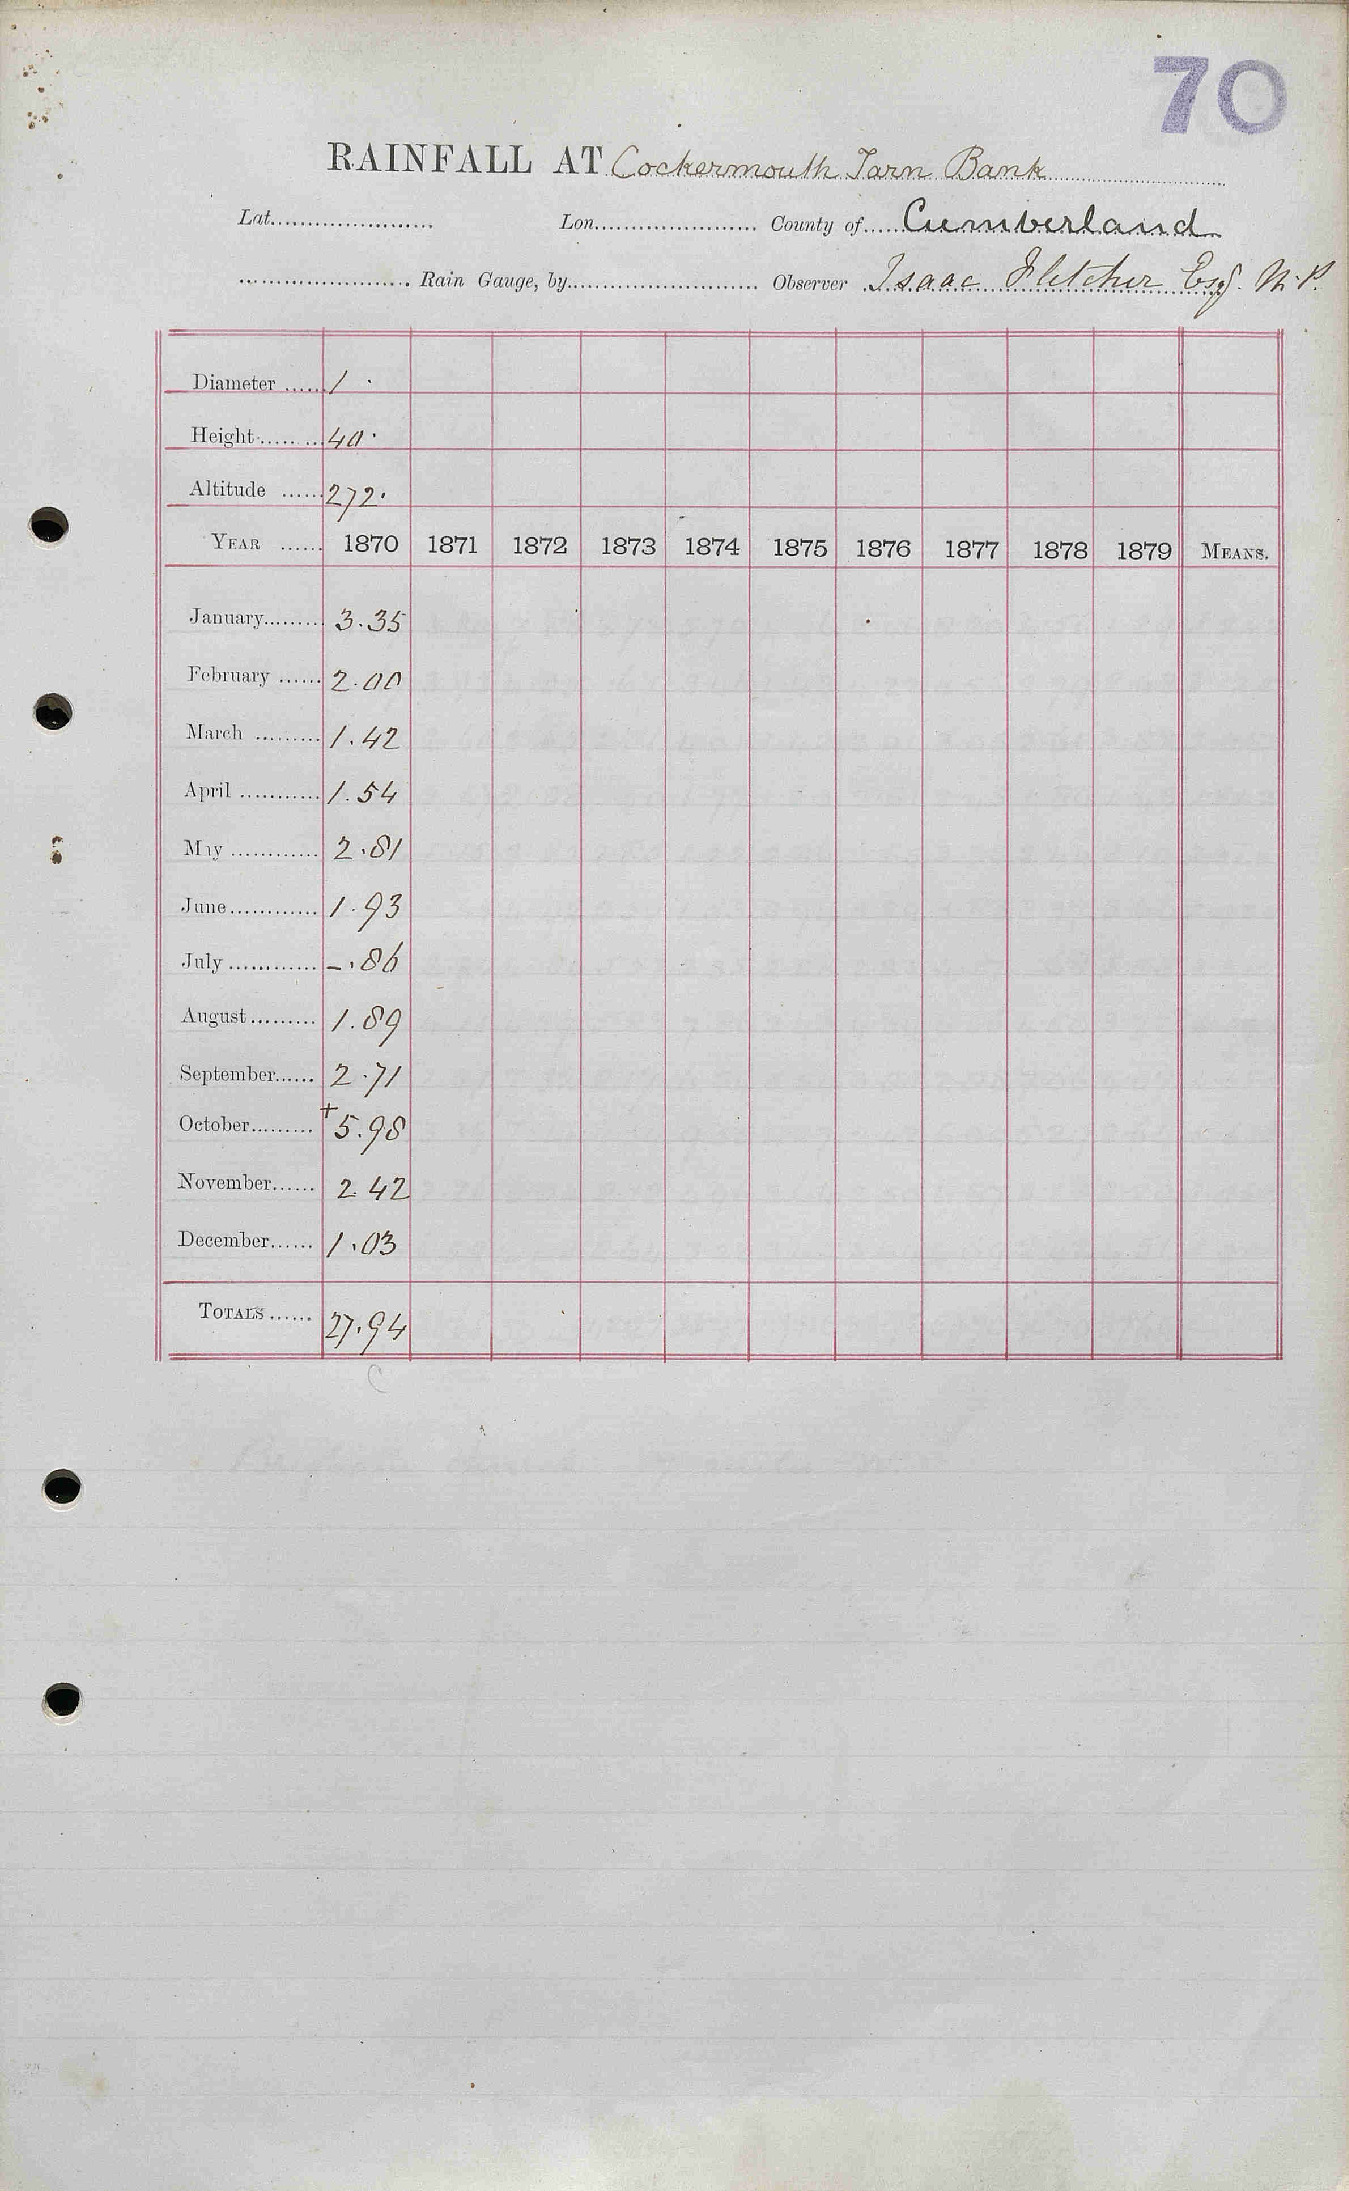 70
RAINFALL AT Cockermouth Tarn Bank
Lat...................... Lon...................... County of..... Cumberland
...................... Rain Gauge, by......................... Observer Isaac Fletcher Esq. M.P.
Diameter ...... 1
Height......... 40
Altitude ...... 272
YEAR ...... 1870 1871 1872 1873 1874 1875 1876 1877 1878 1879 MEANS.
January......... 3.35
February ...... 2.00
March ......... 1.42
April ........... 1.54
May ............ 2.81
June............ 1.93
July ............ –.86
August......... 1.89
September...... 2.71
October......... +5.98
November...... 2 42
December...... 1.03
TOTALS ...... 27.94
C